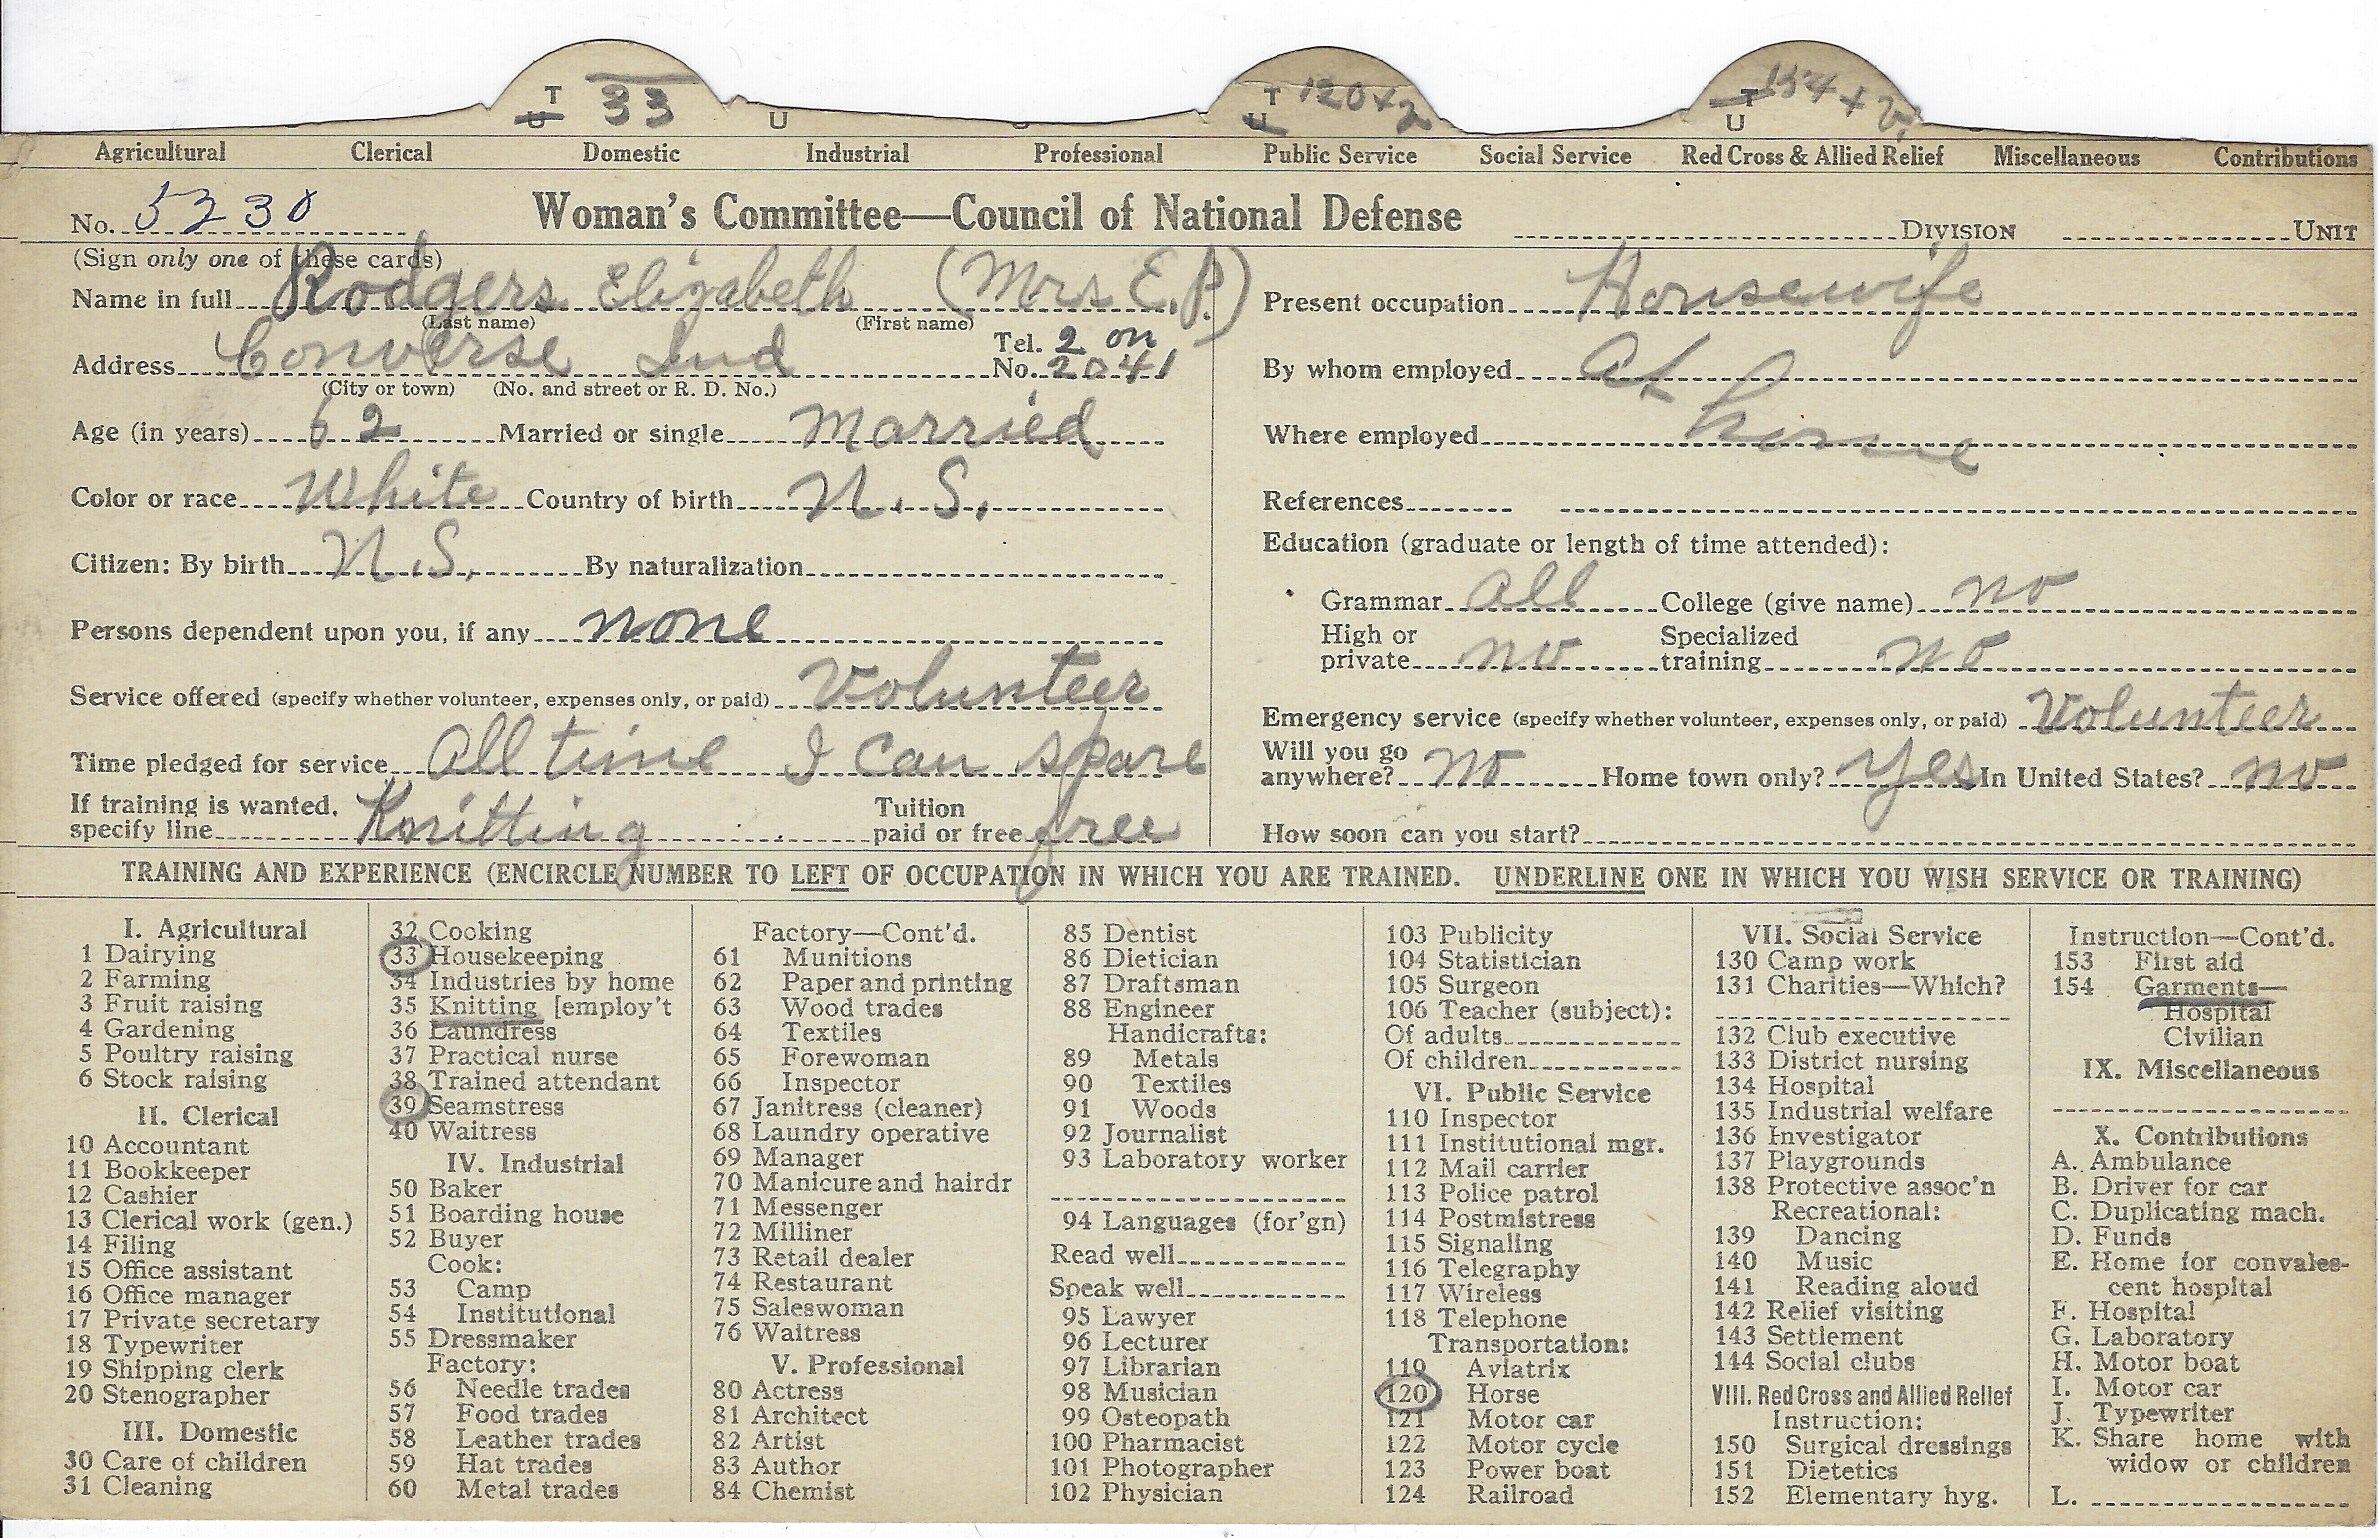 T 33 T 120+2 T 154+2
U U U U
Agricultural Clerical Domestic Industrial Professional Public Service Social Service Red Cross & Allied Relief Miscellaneous Contributions
No. 5230 Woman's Committee—Council of National Defense DIVISION UNIT
(Sign only one of these cards)
Name in full Rodgers Elizabeth (Mrs E.P.)
(Last name) (First name)
Address Converse Ind Tel. No. 2 on 2041
(City or town) (No. and street or R. D. No.)
Age (in years) 62 Married or single Married
Color or race White Country of birth U.S.
Citizen: By birth U.S. By naturalization
Persons dependent upon you, if any none
Service offered (specify whether volunteer, expenses only, or paid) Volunteer
Time pledged for service all time I can spare
If training is wanted, specify line Knitting Tuition paid or free free
Present occupation Housewife
By whom employed At
Where employed home
References
Education (graduate or length of time attended):
Grammar all College (give name) no
High or private no Specialized training no
Emergency service (specify whether volunteer, expenses only, or paid) Volunteer
Will you go anywhere? no Home town only? yes In United States? no
How soon can you start?
TRAINING AND EXPERIENCE (ENCIRCLE NUMBER TO LEFT OF OCCUPATION IN WHICH YOU ARE TRAINED. UNDERLINE ONE IN WHICH YOU WISH SERVICE OR TRAINING)
I. Agricultural
1 Dairying
2 Farming
3 Fruit raising
4 Gardening
5 Poultry raising
6 Stock raising
II. Clerical
10 Accountant
11 Bookkeeper
12 Cashier
13 Clerical work (gen.)
14 Filing
15 Office assistant
16 Office manager
17 Private secretary
18 Typewriter
19 Shipping clerk
20 Stenographer
III. Domestic
30 Care of children
31 Cleaning
32 Cooking
33 Housekeeping
34 Industries by home
35 Knitting [employ't
36 Laundress
37 Practical nurse
38 Trained attendant
39 Seamstress
40 Waitress
IV. Industrial
50 Baker
51 Boarding house
52 Buyer
Cook:
53 Camp
54 Institutional
55 Dressmaker
Factory:
56 Needle trades
57 Food trades
58 Leather trades
59 Hat trades
60 Metal trades
Factory—Cont'd.
61 Munitions
62 Paper and printing
63 Wood trades
64 Textiles
65 Forewoman
66 Inspector
67 Janitress (cleaner)
68 Laundry operative
69 Manager
70 Manicure and hairdr
71 Messenger
72 Milliner
73 Retail dealer
74 Restaurant
75 Saleswoman
76 Waitress
V. Professional
80 Actress
81 Architect
82 Artist
83 Author
84 Chemist
85 Dentist
86 Dietician
87 Draftsman
88 Engineer
Handicrafts:
89 Metals
90 Textiles
91 Woods
92 Journalist
93 Laboratory worker
94 Languages (for'gn)
Read well
Speak well
95 Lawyer
96 Lecturer
97 Librarian
98 Musician
99 Osteopath
100 Pharmacist
101 Photographer
102 Physician
103 Publicity
104 Statistician
105 Surgeon
106 Teacher (subject):
Of adults
Of children
VI. Public Service
110 Inspector
111 Institutional mgr.
112 Mail carrier
113 Police patrol
114 Postmistress
115 Signaling
116 Telegraphy
117 Wireless
118 Telephone
Transportation:
119 Aviatrix
120 Horse
121 Motor car
122 Motor cycle
123 Power boat
124 Railroad
VII. Social Service
130 Camp work
131 Charities—Which?
132 Club executive
133 District nursing
134 Hospital
135 Industrial welfare
136 Investigator
137 Playgrounds
138 Protective assoc'n
Recreational:
139 Dancing
140 Music
141 Reading aloud
142 Relief visiting
143 Settlement
144 Social clubs
VIII. Red Cross and Allied Relief
Instruction:
150 Surgical dressings
151 Dietetics
152 Elementary hyg.
Instruction—Cont'd.
153 First aid
154 Garments—
Hospital
Civilian
IX. Miscellaneous
X. Contributions
A. Ambulance
B. Driver for car
C. Duplicating mach.
D. Funds
E. Home for convales-
cent hospital
F. Hospital
G. Laboratory
H. Motor boat
I. Motor car
J. Typewriter
K. Share home with
widow or children
L.